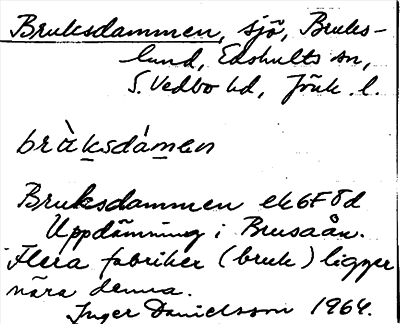 Bruksdammen, sjö, Bruks-
lund, Edshults sn,
S. Vedbo hd, Jönk. l.
brùksdámen
Bruksdammen ek 6F 8d
Uppdämning i Brusaån.
Flera fabriker (bruk) ligger
nära denna.
Inger Danielsson 1964.